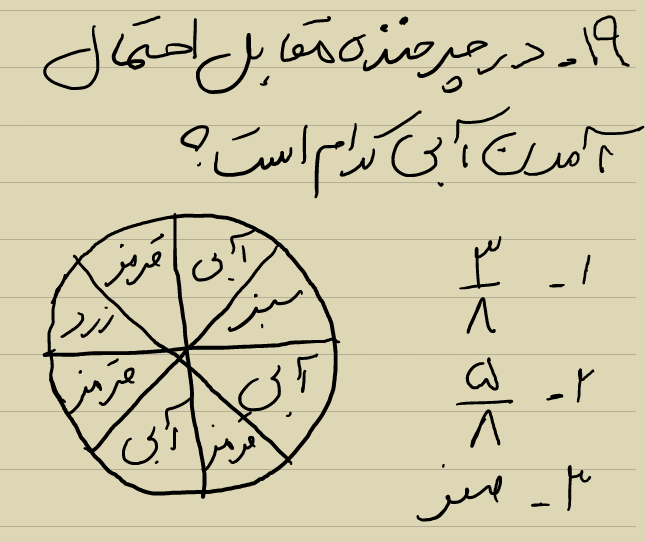 ۱۹- در چرخنده مقابل احتمال
آمدن آبی کدام است؟
۱- ۳/۸
۲- ۵/۸
۳- صفر
آبی
سبز
آبی
قرمز
آبی
قرمز
زرد
قرمز